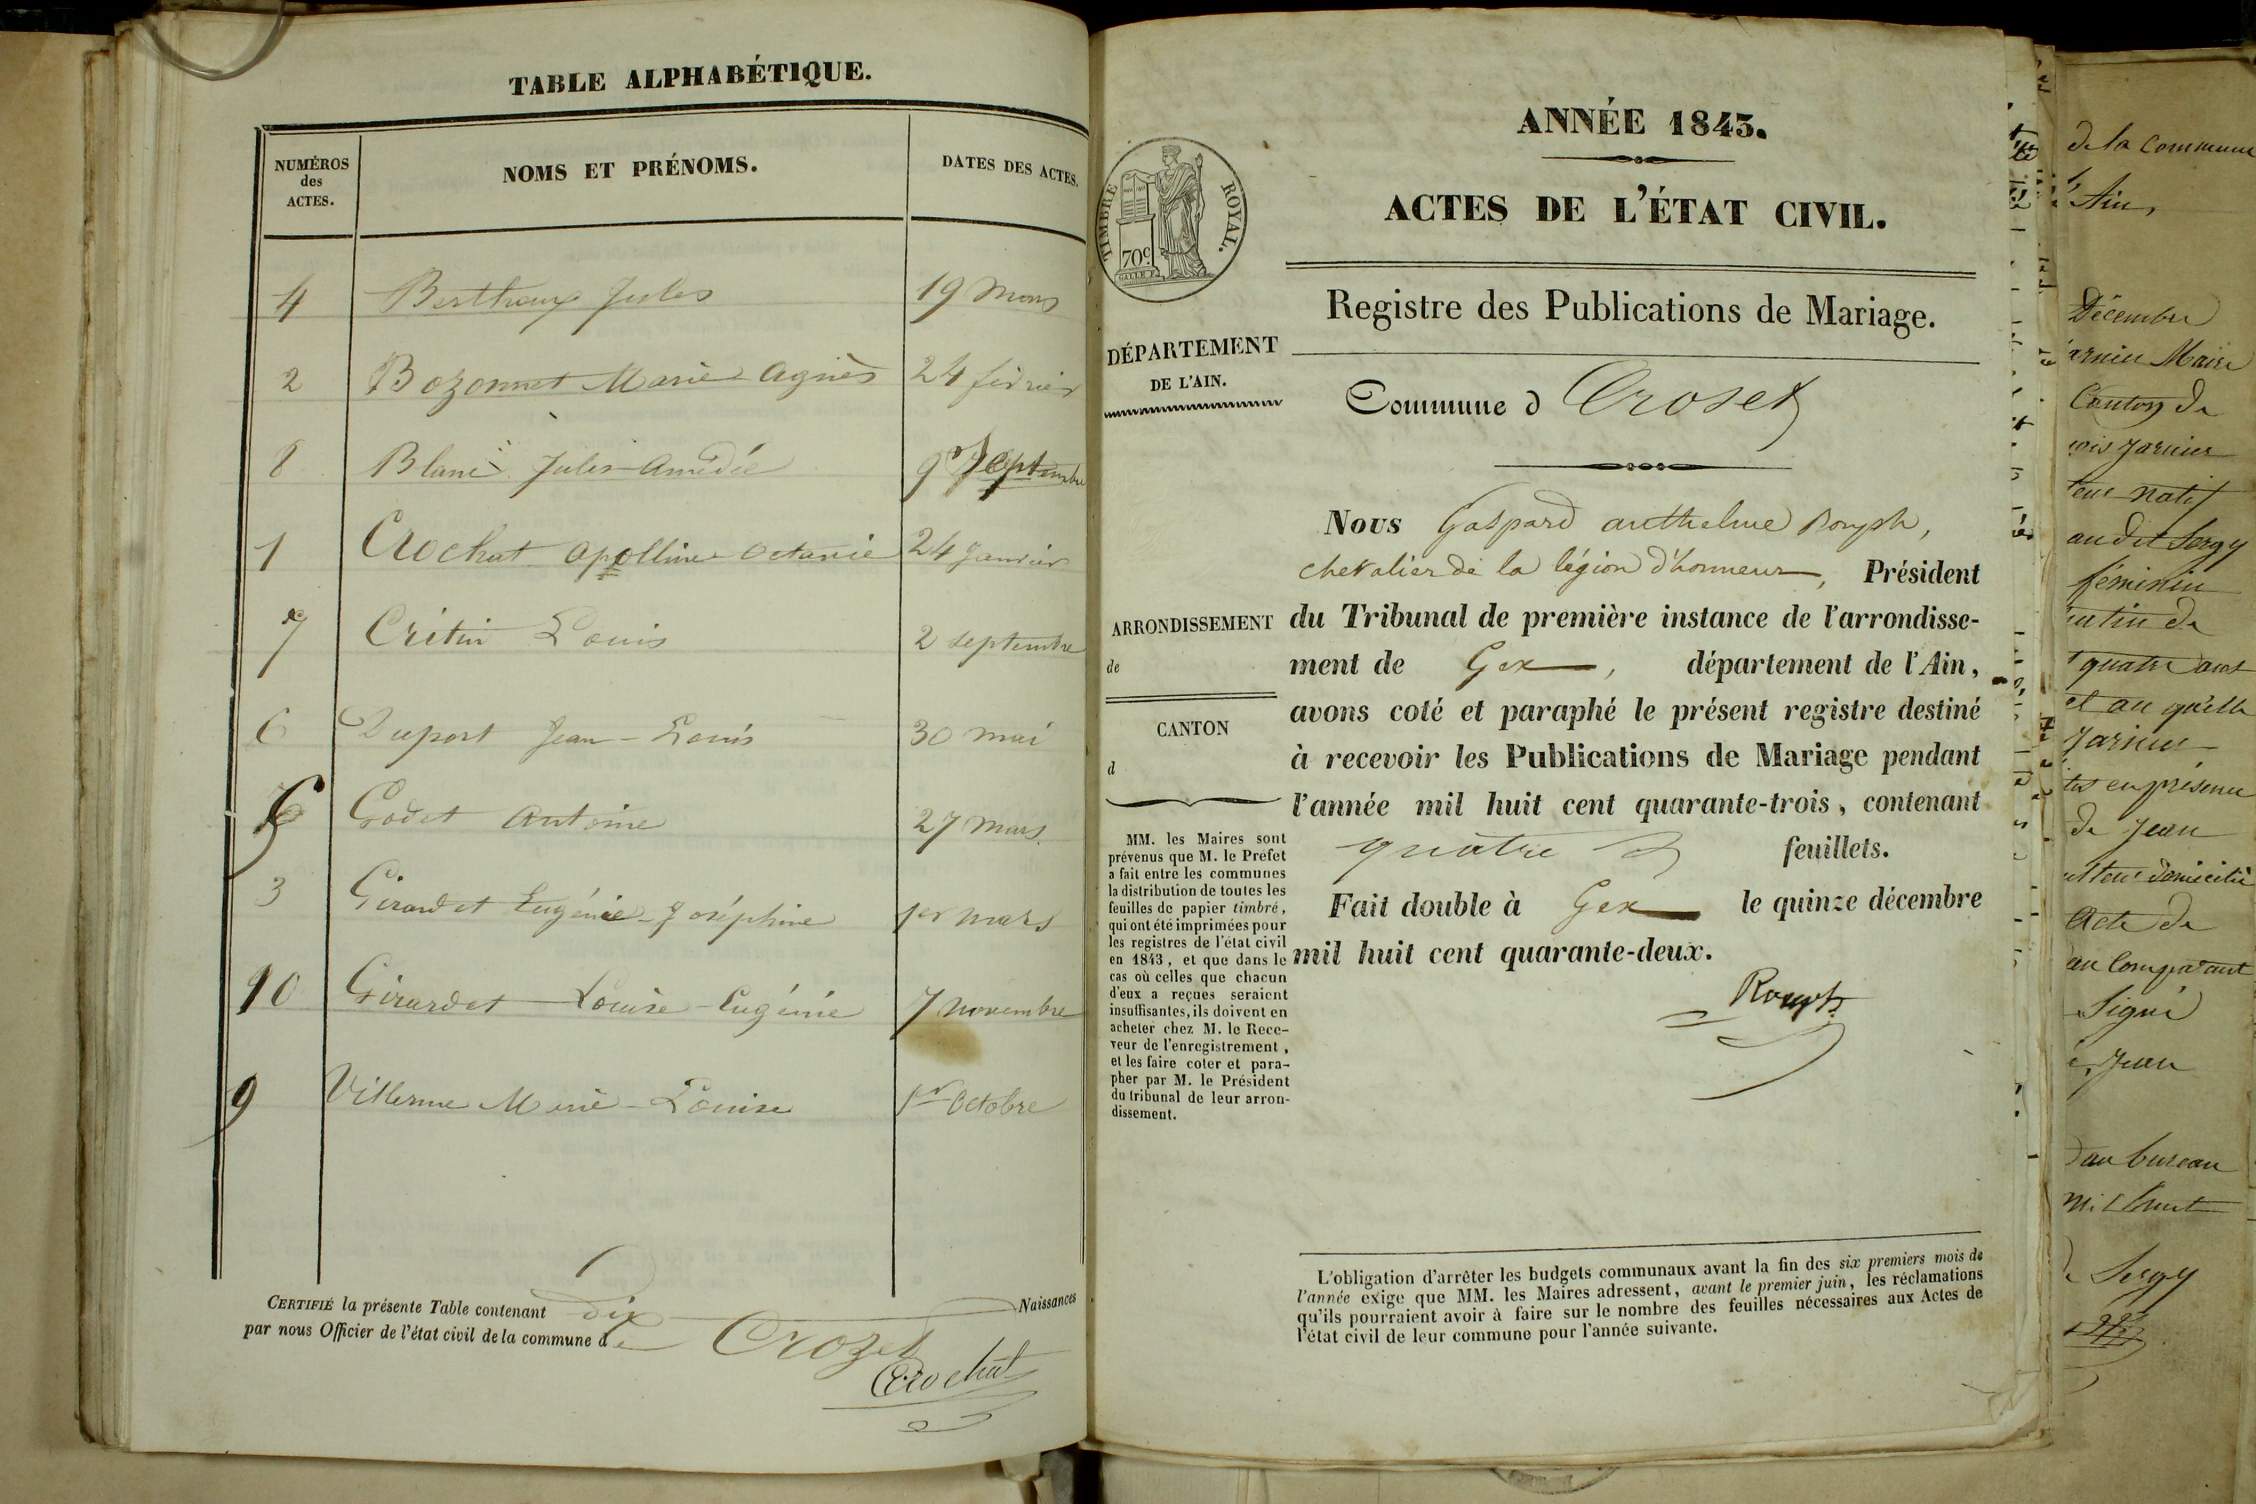 TABLE ALPHABÉTIQUE.
NUMÉROS
des
ACTES.
NOMS ET PRÉNOMS.
DATES DES ACTES.
4 Berthoux Jules 19 mars
2 Bozonnet Marie Agnès 24 février
8 Blanc Jules Amédée 9 Septembre
1 Crochat Apolline Octavie 24 Janvier
7 Crétin Louis 2 septembre
6 Duport Jean-Louis 30 mai
5 Godet Antoine 27 mars
3 Girardet Eugénie-Joséphine 1er mars
10 Girardet Louise-Eugénie 7 novembre
9 Villerme Marie-Louise 1er Octobre
CERTIFIÉ la présente Table contenant dix Naissances
par nous Officier de l'état civil de la commune de Crozet
Crochat
ANNÉE 1843.
ACTES DE L'ÉTAT CIVIL.
TIMBRE ROYAL.
70c
Registre des Publications de Mariage.
DÉPARTEMENT
DE L'AIN.
Commune d Croset
Nous Gaspard anthelme Rouph,
chevalier de la légion d'honneur, Président
du Tribunal de première instance de l'arrondisse-
ment de Gex, département de l'Ain,
avons coté et paraphé le présent registre destiné
à recevoir les Publications de Mariage pendant
l'année mil huit cent quarante-trois, contenant
quatre feuillets.
Fait double à Gex le quinze décembre
mil huit cent quarante-deux.
Rouph
ARRONDISSEMENT
de
CANTON
d
MM. les Maires sont
prévenus que M. le Préfet
a fait entre les communes
la distribution de toutes les
feuilles de papier timbré,
qui ont été imprimées pour
les registres de l'état civil
en 1843, et que dans le
cas où celles que chacun
d'eux a reçues seraient
insuffisantes, ils doivent en
acheter chez M. le Rece-
veur de l'enregistrement,
et les faire coter et para-
pher par M. le Président
du tribunal de leur arron-
dissement.
L'obligation d'arrêter les budgets communaux avant la fin des six premiers mois de
l'année exige que MM. les Maires adressent, avant le premier juin, les réclamations
qu'ils pourraient avoir à faire sur le nombre des feuilles nécessaires aux Actes de
l'état civil de leur commune pour l'année suivante.
de la commune
Ain,
Décembre
Maire
Canton de
natif
au dit Sergy
féminin
de
quatre ans
et au qu'elle
en présence
de Jean
domicilié
Acte de
comparant
Signé
Jean
au bureau
mil huit
Sergy